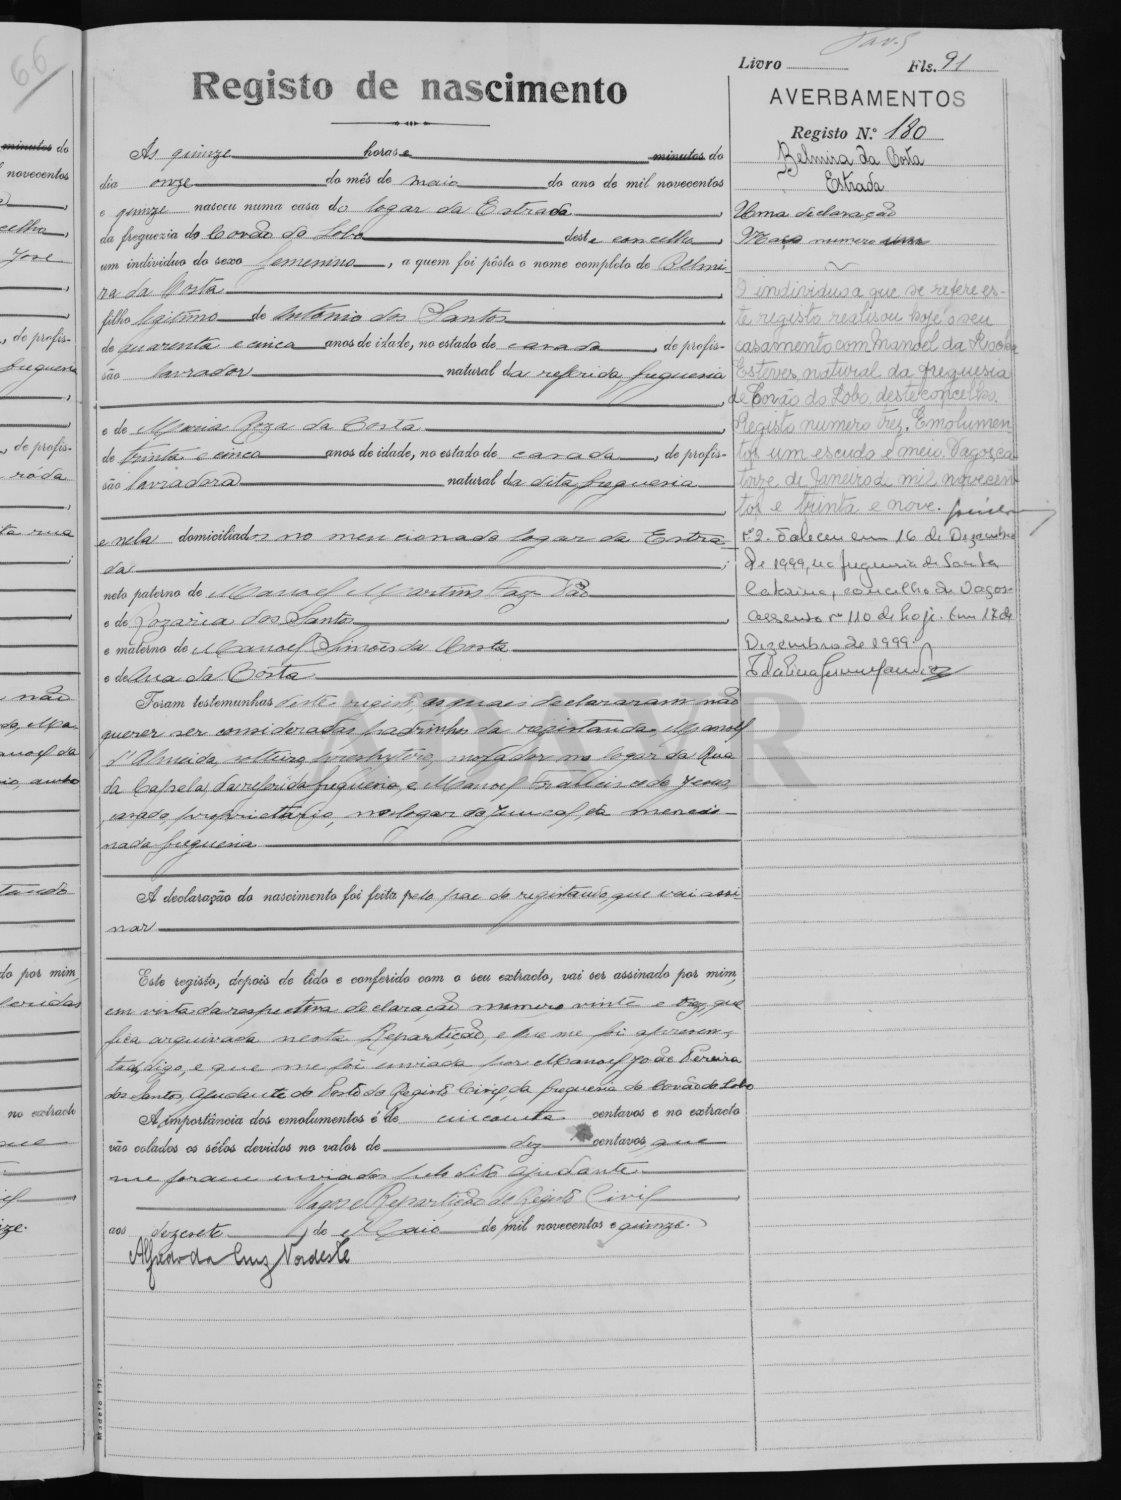 66
Livro Fls. 91
Registo de nascimento
AVERBAMENTOS
Registo N.º 180
Belmira da Costa
Estrada
Uma declaração
Maço numero um
O individuo a que se refere es-
te registo realisou hoje o seu
casamento com Manoel da Rocha
Esteves natural da freguesia
de Covão do Lobo, deste concelho.
Registo numero trez. Emolumen
tos um escudo e meio. Vagos, ca
torze de Janeiro de mil novecen
tos e trinta e nove.
nº 2. Faleceu em 16 de Dezembro
de 1999, na freguesia de Santa
Catarina, concelho de Vagos.
Assento nº 110 de hoje. Em 17 de
Dezembro de 1999.
Às quinze horas e minutos do
dia onze do mês de maio do ano de mil novecentos
e quinze nasceu numa casa do logar da Estrada
da freguezia do Covão do Lobo deste concelho,
um individuo do sexo femenino, a quem foi pôsto o nome completo de Belmi-
ra da Costa
filho legitimo de Antonio dos Santos
de quarenta e cinco anos de idade, no estado de casado, de profis-
são lavrador natural da referida freguesia
e de Maria Roza da Costa
de trinta e cinco anos de idade, no estado de casada, de profis-
são lavradora natural da dita freguesia
e nela domiciliados no mencionado logar da Estra-
da
neto paterno de Manoel Martins Faze Pão
e de Rozaria dos Santos
e materno de Manoel Simões da Costa
e de Ana da Costa
Foram testemunhas deste registo, as quais declararam não
querer ser consideradas padrinhos da registanda, Manoel
d'Almeida, solteiro, presbytero, morador no logar da Rua
da Capela, da referida freguesia, e Manoel Francisco de Jesus,
casado, proprietario, no logar do Juncal, da mencio-
nada freguesia
A declaração do nascimento foi feita pelo pae do registando, que vai assi-
nar
Este registo, depois de lido e conferido com o seu extracto, vai ser assinado por mim,
em vista da respectiva declaração numero vinte e trez, que
fica arquivada nesta Repartição, e que me foi apresen-
tada, digo, e que me foi enviada por Manoel José Pereira
dos Santos, Ajudante do Posto do Registo Civil, da freguesia do Covão do Lobo
A importância dos emolumentos é de cincoenta centavos e no extracto
vão colados os sêlos devidos no valor de dez centavos, que
me foram enviados pelo dito ajudante.
Vagos e Repartição do Registo Civil
aos dezesete de Maio de mil novecentos e quinze.
Alfredo da Cruz Nordeste
ADAVR
Modelo 121